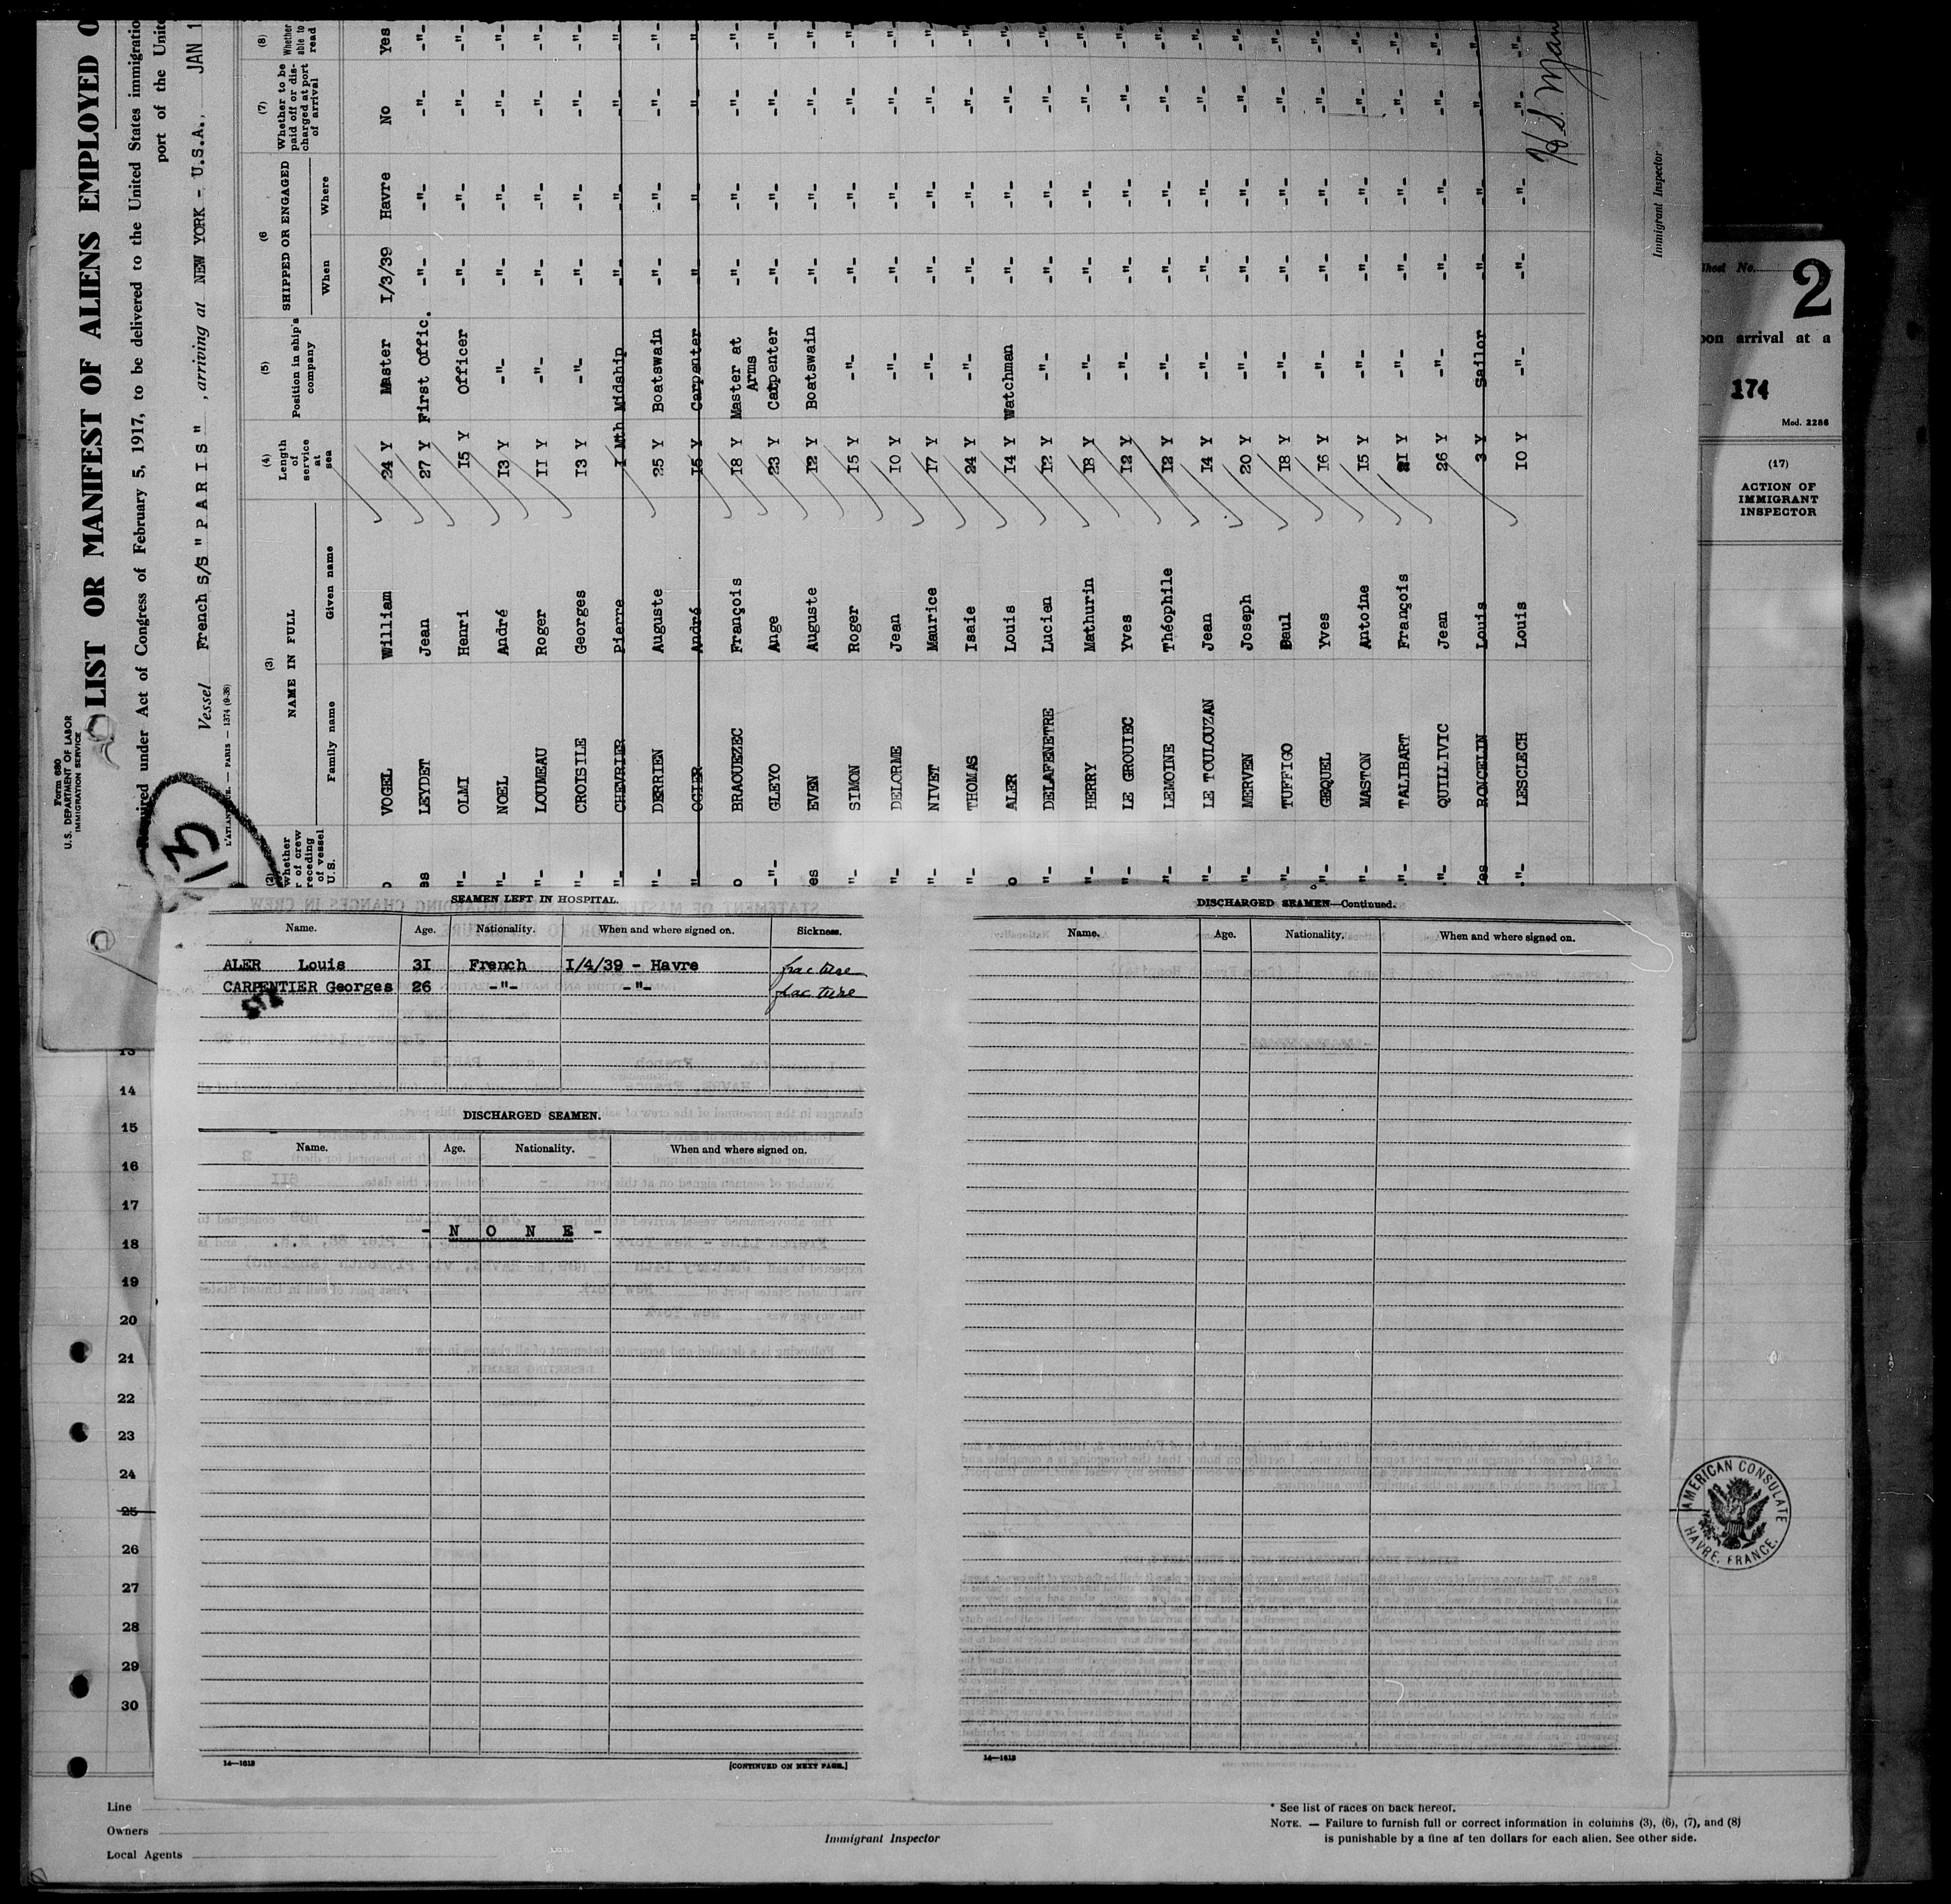 Form 680
U.S. DEPARTMENT OF LABOR
IMMIGRATION SERVICE
LIST OR MANIFEST OF ALIENS EMPLOYED O
Required under Act of Congress of February 5, 1917, to be delivered to the United States immigratio
port of the Unite
Vessel French S/S "PARIS", arriving at NEW YORK - U.S.A., JAN 1
L'ATLANTIQUE. — PARIS — 1374 (9-38)
13
(3) (4) (5) (6 (7) (8)
NAME IN FULL Length of service at sea Position in ship's company SHIPPED OR ENGAGED Whether to be paid off or discharged at port of arrival Whether able to read
Family name Given name When Where
VOGEL William 24 Y Master I/3/39 Havre No Yes
LEYDET Jean 27 Y First Offic. -"- -"- -"- -"-
OLMI Henri I5 Y Officer -"- -"- -"- -"-
NOEL André I3 Y -"- -"- -"- -"- -"-
LOUMEAU Roger II Y -"- -"- -"- -"- -"-
CROISILE Georges I3 Y -"- -"- -"- -"- -"-
CHEVRIER Pierre I Mth Midship -"- -"- -"- -"-
DERRIEN Auguste 25 Y Boatswain -"- -"- -"- -"-
OGIER André I5 Y Carpenter -"- -"- -"- -"-
BRAOUEZEC François I8 Y Master at Arms -"- -"- -"- -"-
GLEYO Ange 23 Y Carpenter -"- -"- -"- -"-
EVEN Auguste I2 Y Boatswain -"- -"- -"- -"-
SIMON Roger I5 Y -"- -"- -"- -"- -"-
DELORME Jean I0 Y -"- -"- -"- -"- -"-
NIVET Maurice I7 Y -"- -"- -"- -"- -"-
THOMAS Isaie 24 Y -"- -"- -"- -"- -"-
ALER Louis I4 Y Watchman -"- -"- -"- -"-
DELAFENETRE Lucien I2 Y -"- -"- -"- -"- -"-
HERRY Mathurin I8 Y -"- -"- -"- -"- -"-
LE GROUIEC Yves I2 Y -"- -"- -"- -"- -"-
LEMOINE Théophile I2 Y -"- -"- -"- -"- -"-
LE TOULOUZAN Jean I4 Y -"- -"- -"- -"- -"-
MERVEN Joseph 20 Y -"- -"- -"- -"- -"-
TUFFIGO Paul I8 Y -"- -"- -"- -"- -"-
GEQUEL Yves I6 Y -"- -"- -"- -"- -"-
MASTON Antoine I5 Y -"- -"- -"- -"- -"-
TALIBART François 21 Y -"- -"- -"- -"- -"-
QUILLIVIC Jean 26 Y -"- -"- -"- -"- -"-
RONCELIN Louis 3 Y Sailor -"- -"- -"- -"-
LESCLECH Louis I0 Y -"- -"- -"- -"- -"-
Immigrant Inspector
Sheet No. 2
pon arrival at a
174
Mod. 2286
(17)
ACTION OF
IMMIGRANT
INSPECTOR
SEAMEN LEFT IN HOSPITAL.
Name. Age. Nationality. When and where signed on. Sickness.
ALER Louis 3I French I/4/39 - Havre fracture
CARPENTIER Georges 26 -"- -"- fracture
DISCHARGED SEAMEN.
Name. Age. Nationality. When and where signed on.
- N O N E -
14—1613
[CONTINUED ON NEXT PAGE.]
DISCHARGED SEAMEN—Continued.
Name. Age. Nationality. When and where signed on.
14—1613
13
14
15
16
17
18
19
20
21
22
23
24
25
26
27
28
29
30
AMERICAN CONSULATE
HAVRE, FRANCE.
Line
Owners
Local Agents
Immigrant Inspector
* See list of races on back hereof.
NOTE. — Failure to furnish full or correct information in columns (3), (6), (7), and (8)
is punishable by a fine af ten dollars for each alien. See other side.